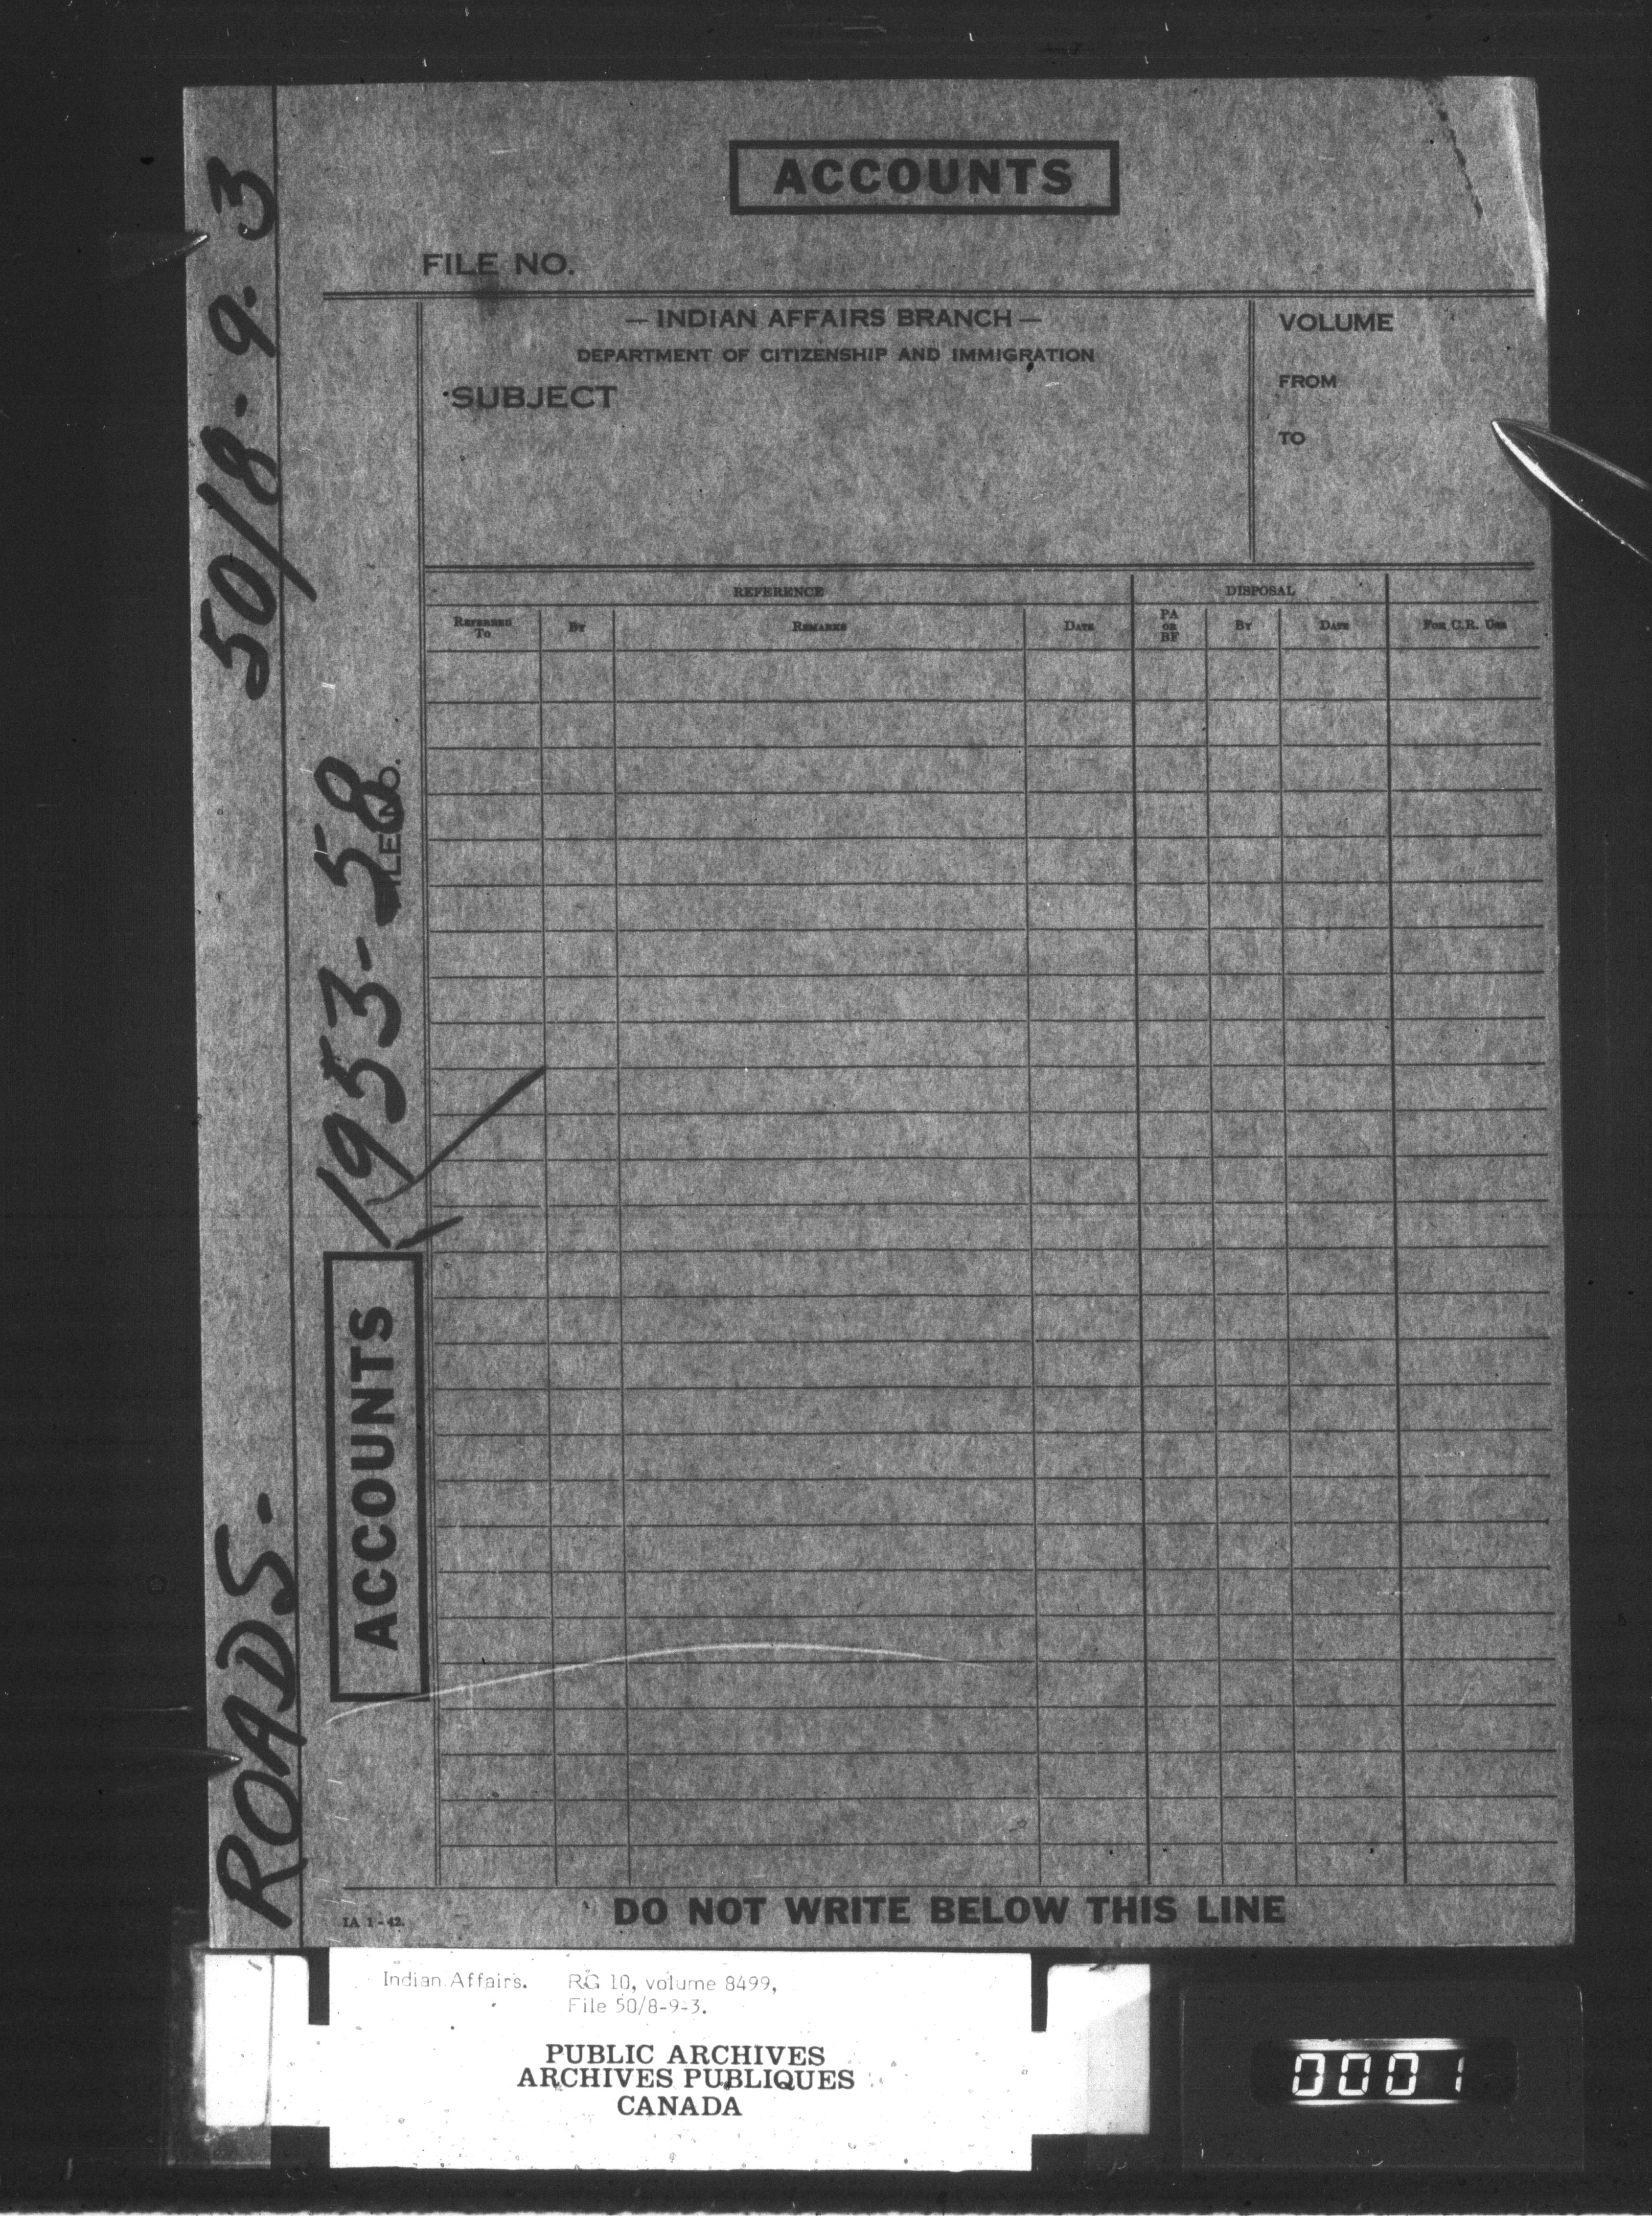 ACCOUNTS
FILE NO.
— INDIAN AFFAIRS BRANCH —
DEPARTMENT OF CITIZENSHIP AND IMMIGRATION
SUBJECT
VOLUME
FROM
TO
REFERENCE
DISPOSAL
REFERRED TO
BY
REMARKS
DATE
PA OR BF
BY
DATE
FOR C.R. USE
50/8-9-3
ROADS-
FILE NO.
1953-58
ACCOUNTS
IA 1-42.
DO NOT WRITE BELOW THIS LINE
Indian Affairs. RG 10, volume 8499,
File 50/8-9-3.
PUBLIC ARCHIVES
ARCHIVES PUBLIQUES
CANADA
0001